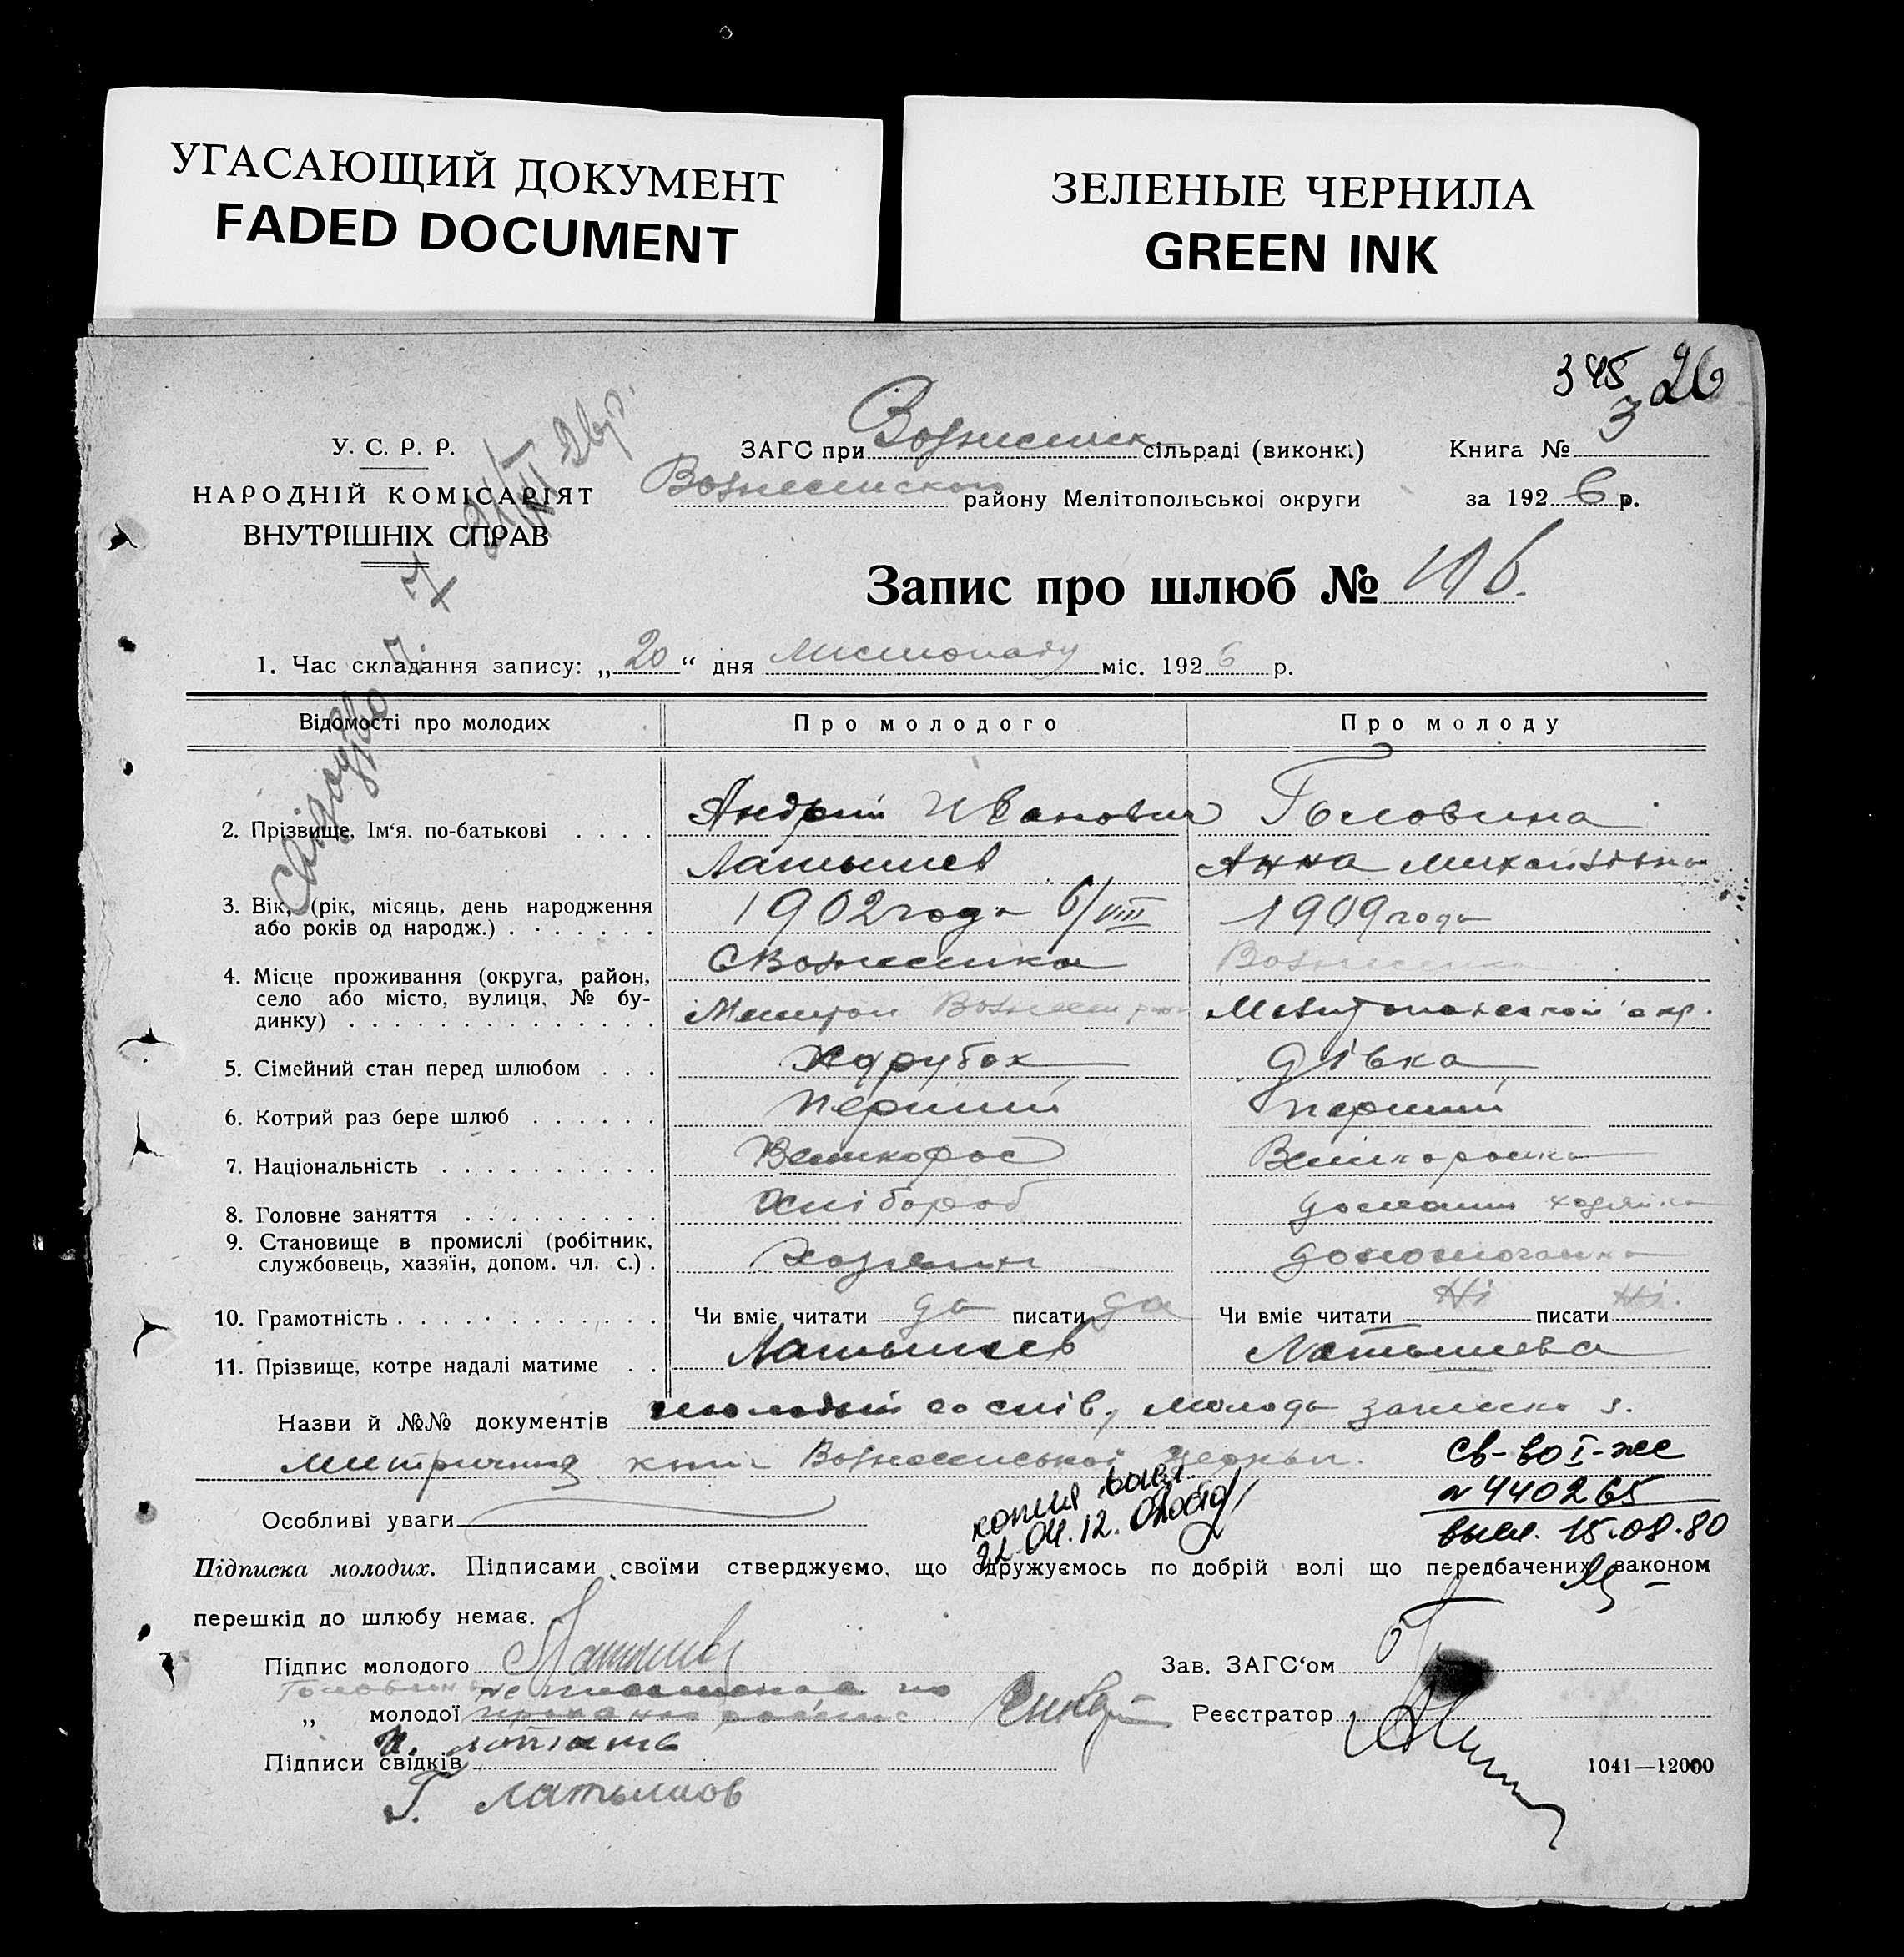 УГАСАЮЩИЙ ДОКУМЕНТ
FADED DOCUMENT
ЗЕЛЕНЫЕ ЧЕРНИЛА
GREEN INK
345 26
У. С. Р. Р.
НАРОДНІЙ КОМІСАРІЯТ
ВНУТРІШНІХ СПРАВ
ЗАГС при Вознесенск сільраді (виконк.)
Книга № 3
Вознесенского району Мелітопольської округи
за 1926 р.
Запис про шлюб №
1. Час складання запису: „20“ дня Листопаду міс. 1926 р.
Відомості про молодих
Про молодого
Про молоду
2. Прізвище, Ім‘я. по-батькові
Андрій Иванович
Латышев
Головина
Анна Михайлівна
3. Вік, (рік, місяць, день народження
або років од народж.)
1902 года 6/VIII
1909 года
4. Місце проживання (округа, район,
село або місто, вулиця, № бу-
динку)
С Вознесенка
Вознесенка
Мелітопольской окр.
5. Сімейний стан перед шлюбом
Парубок
дівка
6. Котрий раз бере шлюб
перший
перший
7. Національність
Великорос
Великороска
8. Головне заняття
Хлібороб
домашн хазяйка
9. Становище в промислі (робітник,
службовець, хазяїн, допом. чл. с.)
хазяин
допомогающа
10. Грамотність
Чи вміє читати да писати да
Чи вміє читати Ні писати Ні.
11. Прізвище, котре надалі матиме
Латышев
Латышева
Назви й №№ документів молодый молода
книг Вознесенської церкви.
св-во I-же
№ 440265
выл. 15.08.80
Особливі уваги
копия
Підписка молодих. Підписами своїми стверджуємо, що одружуємось по добрій волі що передбачених законом
перешкід до шлюбу немає.
Підпис молодого Латышев
Зав. ЗАГС‘ом
Головина
„ молодої
Реєстратор
Підписи свідків
1041—12000
Г. Латышов